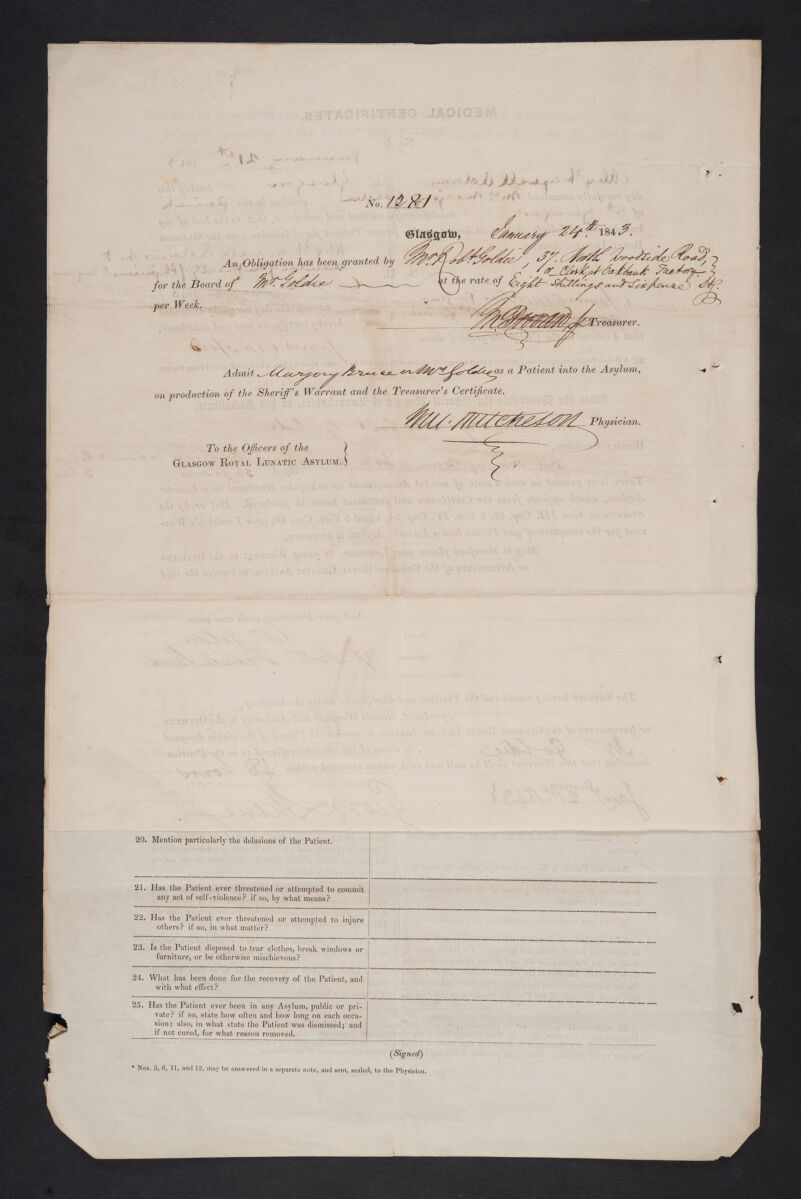 No. 1281
Glasgow, January 24th 1843.
An Obligation has been granted by Mr Robt Goldie, 37. North Woodside Road,
or Clerk at Oakbank Factory
for the Board of Mrs. Goldie at the rate of Eight Shillings and Sixpence Stg.
per Week.
Treasurer.
Admit Marjory Bruce or Mrs Goldie as a Patient into the Asylum,
on production of the Sheriff's Warrant and the Treasurer's Certificate.
Wm. Hutcheson Physician.
To the Officers of the
GLASGOW ROYAL LUNATIC ASYLUM.
20. Mention particularly the delusions of the Patient.
21. Has the Patient ever threatened or attempted to commit
any act of self-violence? if so, by what means?
22. Has the Patient ever threatened or attempted to injure
others? if so, in what matter?
23. Is the Patient disposed to tear clothes, break windows or
furniture, or be otherwise mischievous?
24. What has been done for the recovery of the Patient, and
with what effect?
25. Has the Patient ever been in any Asylum, public or pri-
vate? if so, state how often and how long on each occa-
sion; also, in what state the Patient was dismissed; and
if not cured, for what reason removed.
(Signed)
* Nos. 5, 6, 11, and 12, may be answered in a separate note, and sent, sealed, to the Physician.